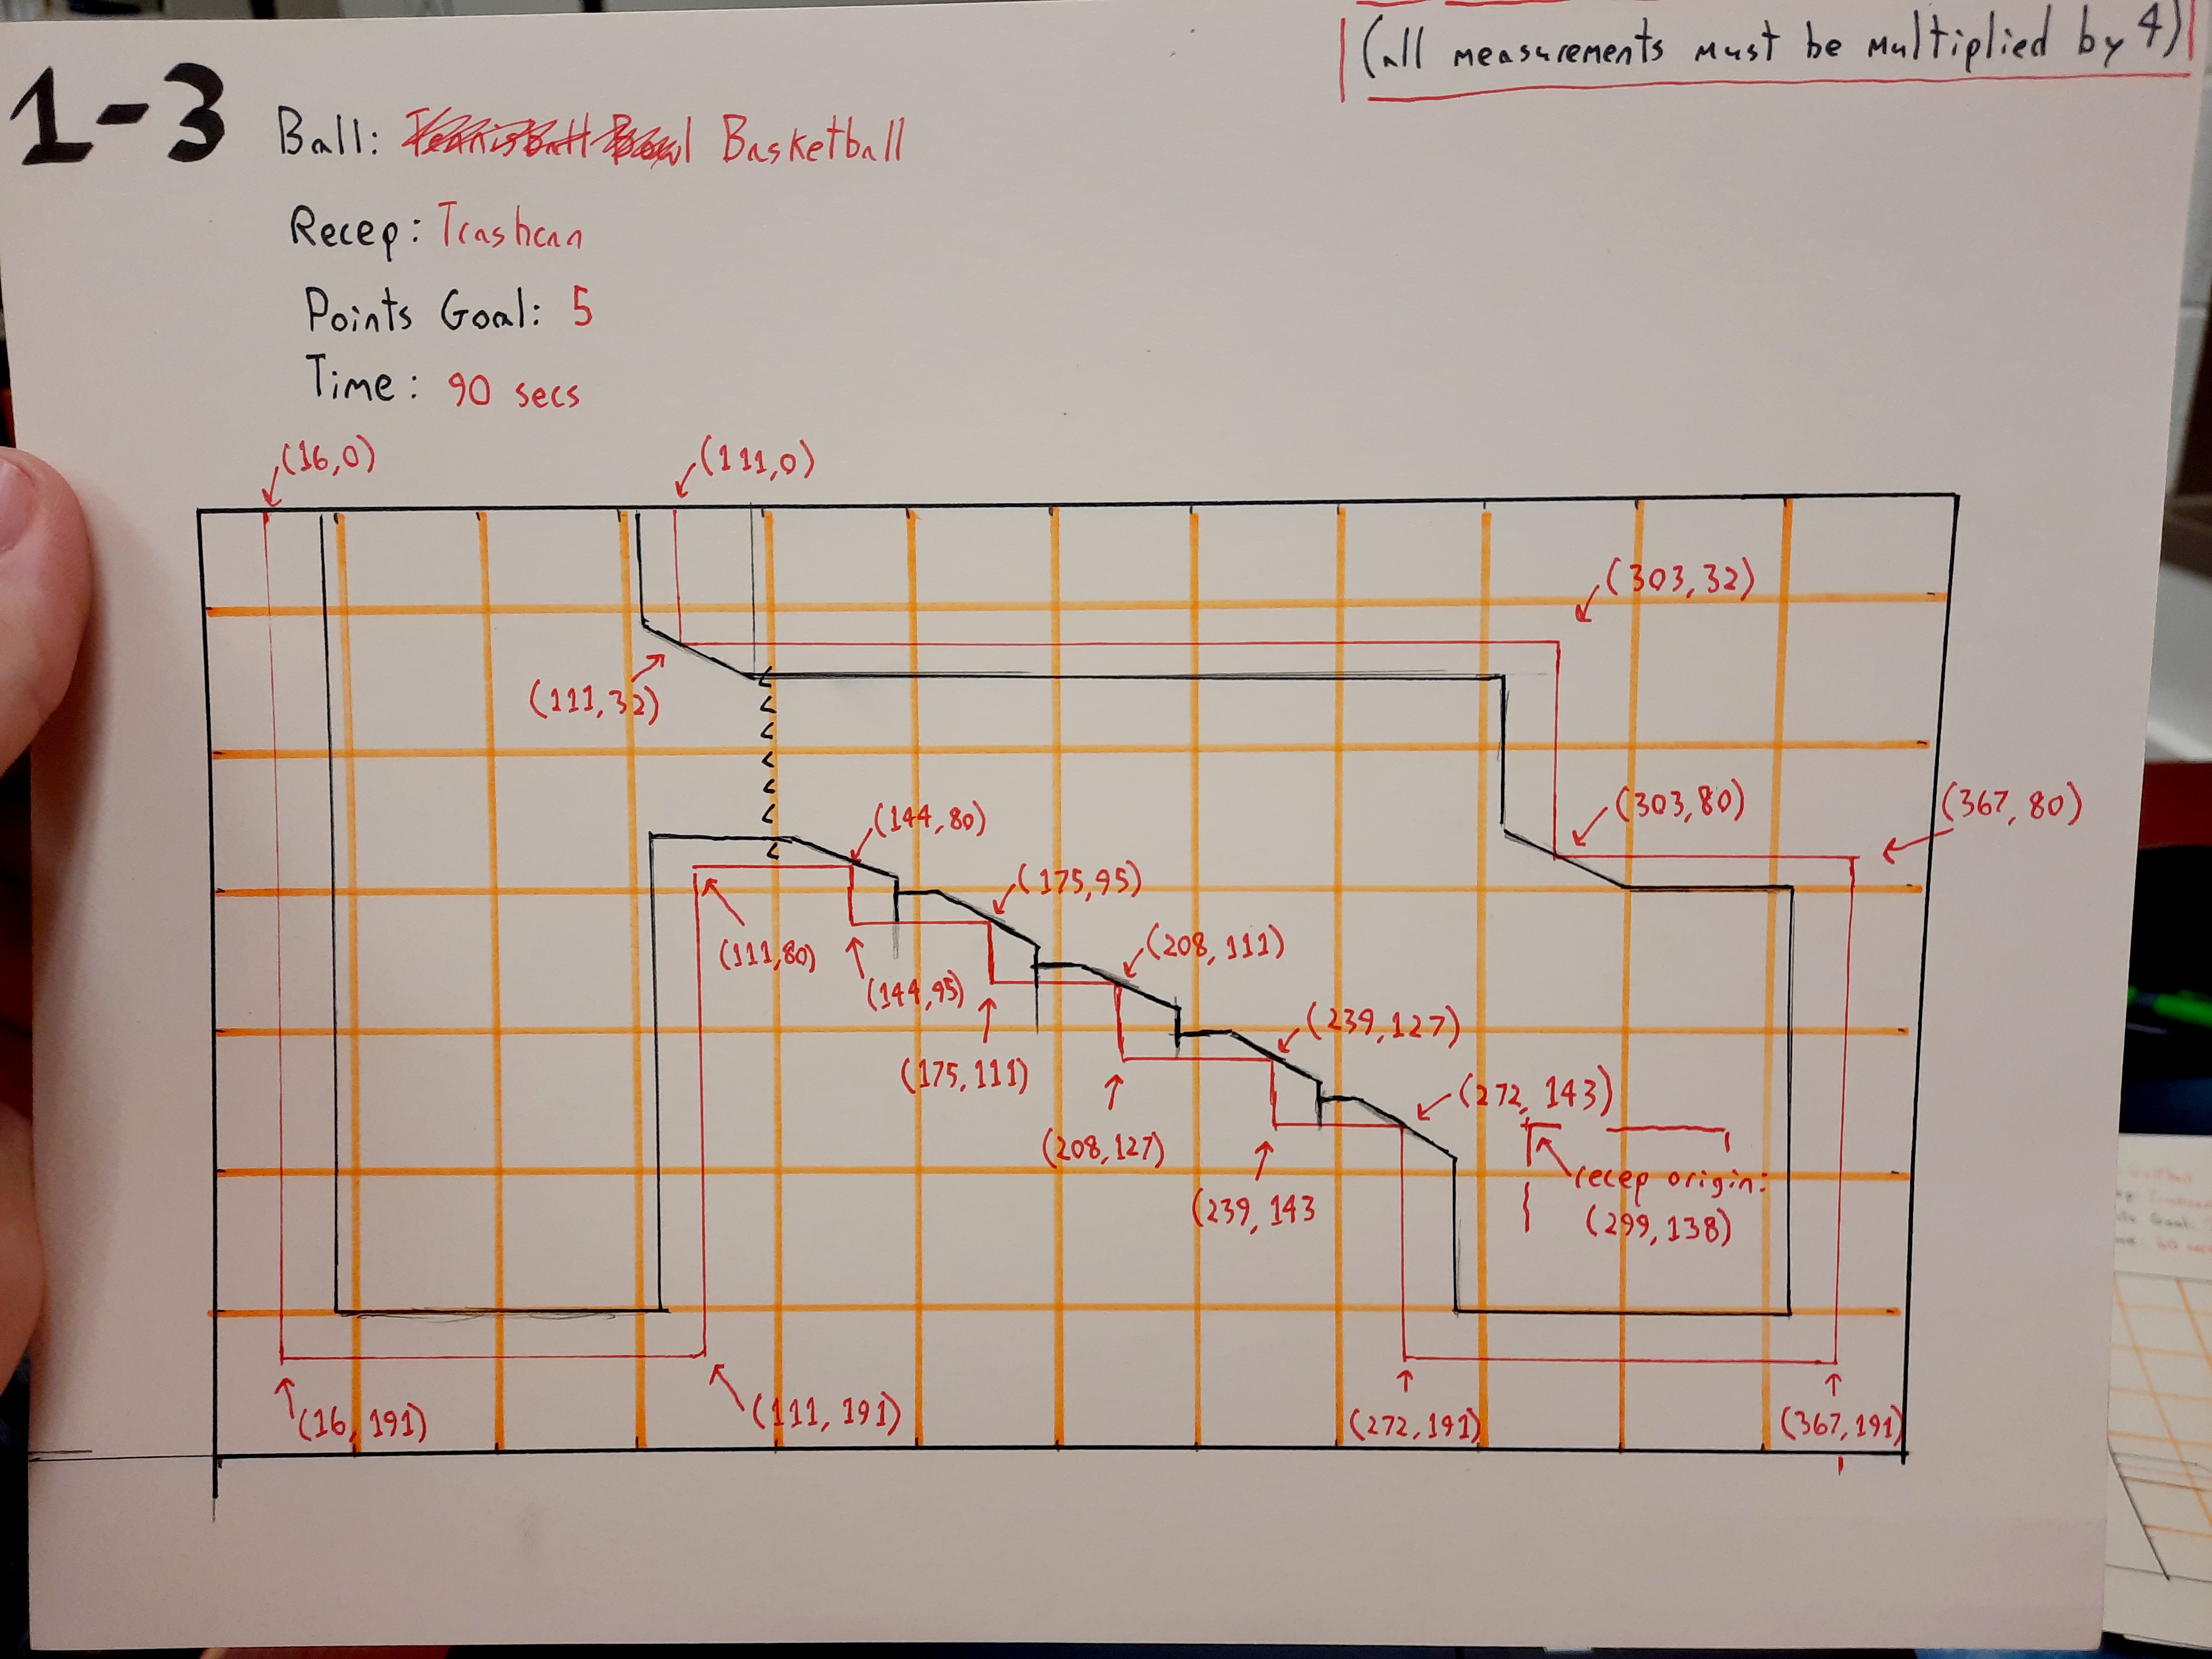 (all measurements must be multiplied by 4)
1-3
Ball: Basketball
Recep: Trashcan
Points Goal: 5
Time: 90 secs
(16,0)
(111,0)
(303,32)
(111,32)
(303,80)
(367,80)
(144,80)
(175,95)
(111,80)
(208,111)
(144,95)
(239,127)
(175,111)
(272,143)
(208,127)
recep origin:
(299,138)
(239,143
(16,191)
(111,191)
(272,191)
(367,191)